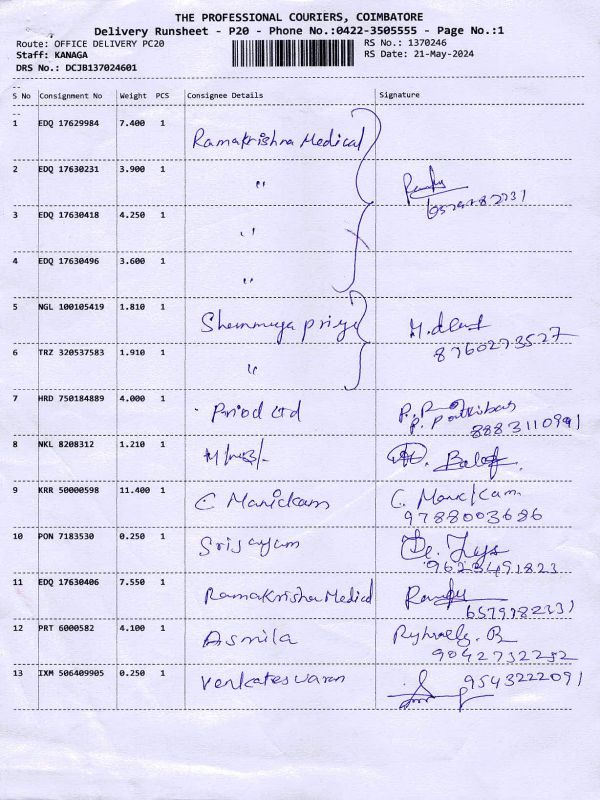 THE PROFESSIONAL COURIERS, COIMBATORE
Delivery Runsheet - P20 - Phone No.:0422-3505555 - Page No.:1
Route: OFFICE DELIVERY PC20
RS No.: 1370246
Staff: KANAGA
RS Date: 21-May-2024
DRS No.: DCJB137024601
S No Consignment No Weight PCS Consignee Details Signature
1 EDQ 17629984 7.400 1 Ramakrishna Medical
2 EDQ 17630231 3.900 1 "
3 EDQ 17630418 4.250 1 "
4 EDQ 17630496 3.600 1 "
5 NGL 100105419 1.810 1 Shanmuga priya
8760273527
6 TRZ 320537583 1.910 1 "
7 HRD 750184889 4.000 1 Ltd
8883110991
8 NKL 8208312 1.210 1
9 KRR 50000598 11.400 1 C Manickam C. Manickam
9788003686
10 PON 7183530 0.250 1
9623491823
11 EDQ 17630406 7.550 1 Ramakrishna Medical
6579782331
12 PRT 6000582 4.100 1 Asmila
9042732252
13 IXM 506409905 0.250 1 Venkateswaran 9543222091